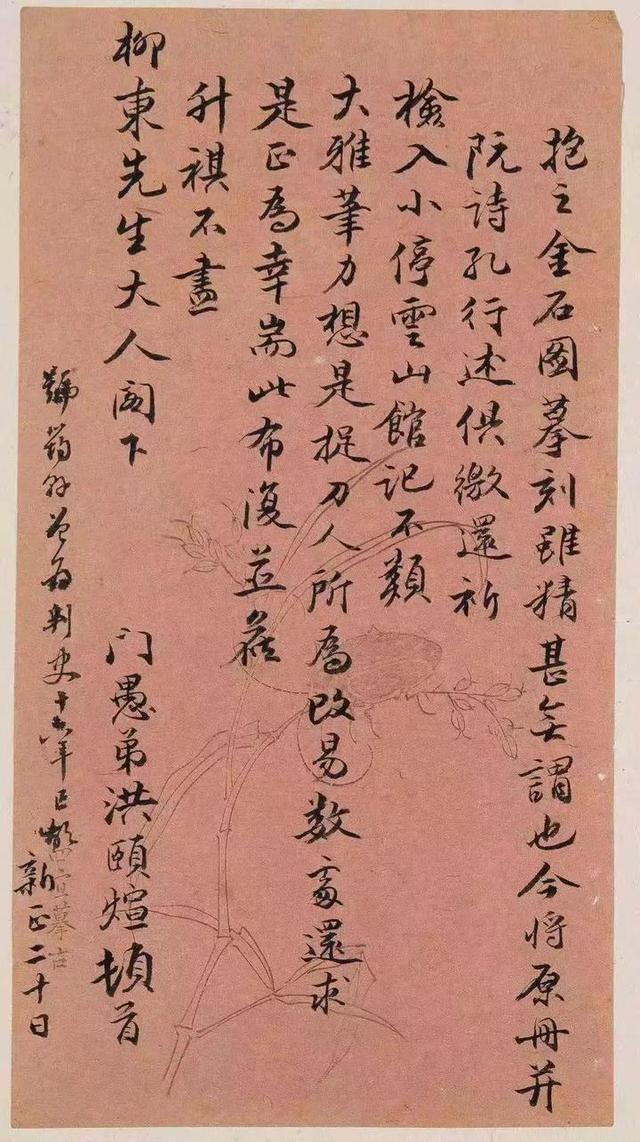 抱之金石圖摹刻雖精甚無謂也今將原冊并
阮詩孔行述俱繳還祈
檢入小停雲山館記不類
大雅筆力想是捉刀人所為改易數處還求
是正為幸耑此布復並候
升祺不盡
柳東先生大人閣下
门愚弟洪頤煊頓首
新正二十日
判史十六年
宣摹古